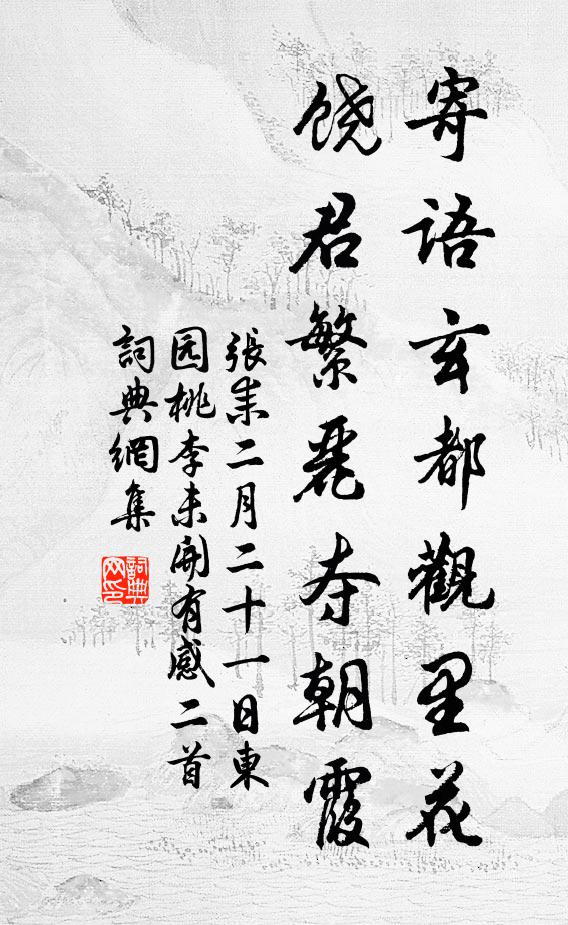 寄語玄都觀里花
饶君繁麗夺朝霞
張耒二月二十一日東
园桃李未開有感二首
詞典網集
詞典
网印